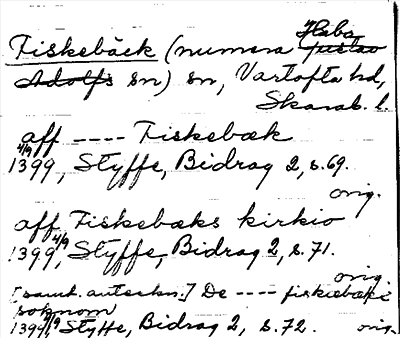 Habo
Fiskebäck (numera Gustav
Adolfs sn) sn, Vartofta hd,
Skarab. l.
aff ---- Fiskebæk
4/9
1399, Styffe, Bidrag 2, s. 69.
orig.
aff Fiskebæks kirkio
1399 4/9, Styffe, Bidrag 2, s. 71.
orig.
[samt. anteckn.] De ---- fiskiebæks
soknom
1399 4/9, Styffe, Bidrag 2, s. 72. orig.